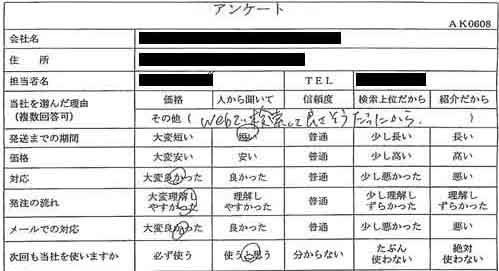 アンケート
AK0608
会社名
住 所
担当者名 TEL
当社を選んだ理由 (複数回答可) 価格 人から聞いて 信頼度 検索上位だから 紹介だから
その他 ( Webで検索して良さそうだったから。 )
発送までの期間 大変短い 短い 普通 少し長い 長い
価格 大変安い 安い 普通 少し高い 高い
対応 大変良かった 良かった 普通 少し悪かった 悪い
発注の流れ 大変理解しやすかった 理解しやすかった 普通 少し理解しずらかった 理解しずらかった
メールでの対応 大変良かった 良かった 普通 少し悪かった 悪い
次回も当社を使いますか 必ず使う 使うと思う 分からない たぶん使わない 絶対使わない